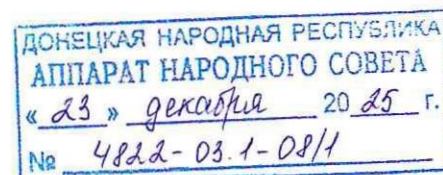 ДОНЕЦКАЯ НАРОДНАЯ РЕСПУБЛИКА
АППАРАТ НАРОДНОГО СОВЕТА
« 23 » декабря 2025 г.
№ 4822-03.1-08/1